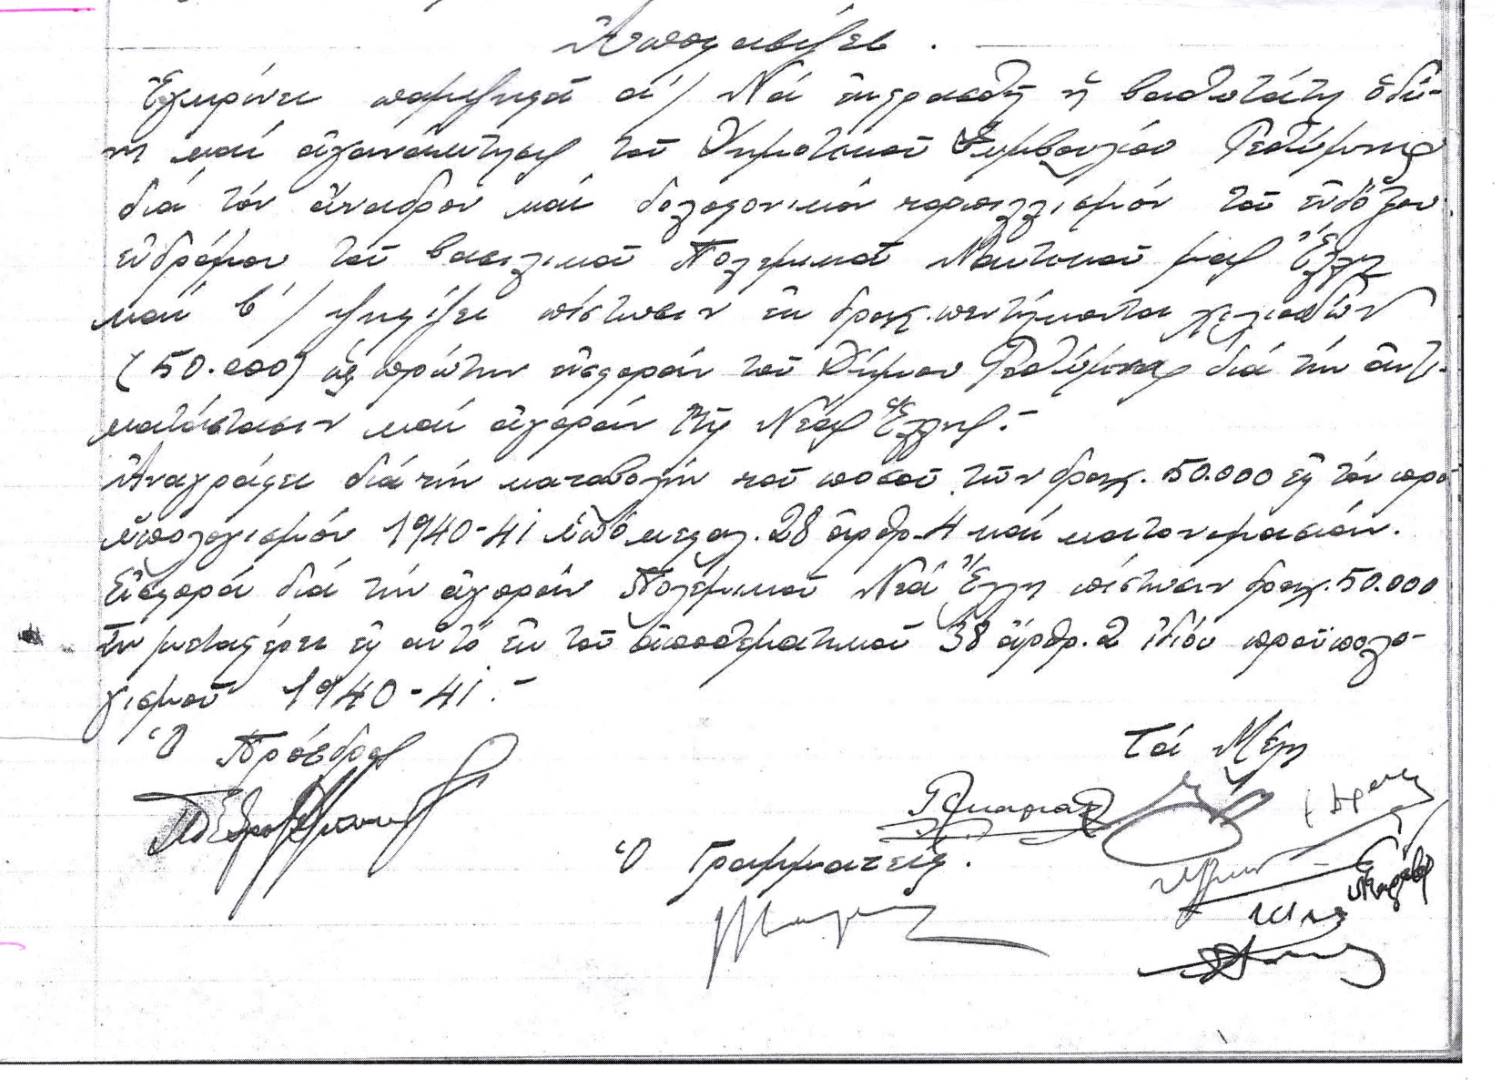 Ἀποφασίζει.
Ἐγκρίνει παμψηφεί α΄/ Νά ἐκφρασθῇ ἡ βαθυτάτη ὀδύ-
νη καί ἀγανάκτησις τοῦ Δημοτικοῦ Συμβουλίου Ρεθύμνης
διά τόν ἄνανδρον καί δολοφονικόν τορπιλλισμόν τοῦ ἐνδόξου
εὐδρόμου τοῦ Βασιλικοῦ Πολεμικοῦ Ναυτικοῦ μας Ἕλλη
καί β΄/ ψηφίζει πίστωσιν ἐκ δραχ. πεντήκοντα χιλιάδων
(50.000) ὡς πρώτην εἰσφοράν τοῦ Δήμου Ρεθύμνης διά τήν ἀντι-
κατάστασιν καί ἀγοράν τῆς Νέας Ἕλλης.-
Ἀναγράφει διά τήν καταβολήν τοῦ ποσοῦ τῶν δραχ. 50.000 εἰς τόν προ-
ϋπολογισμόν 1940-41 ὑπό κεφαλ. 28 ἄρθρ. 4 καί κατονομασίαν.
Εἰσφορά διά τήν ἀγοράν Πολεμικοῦ Νέα Ἕλλη πίστωσιν δραχ. 50.000
ἥν μεταφέρει εἰς αὐτό ἐκ τοῦ ἀποθεματικοῦ 38 ἄρθρ. 2 ἰδίου προϋπολο-
γισμοῦ 1940-41.-
Ὁ Πρόεδρος
Τά Μέλη
Ὁ Γραμματεύς.